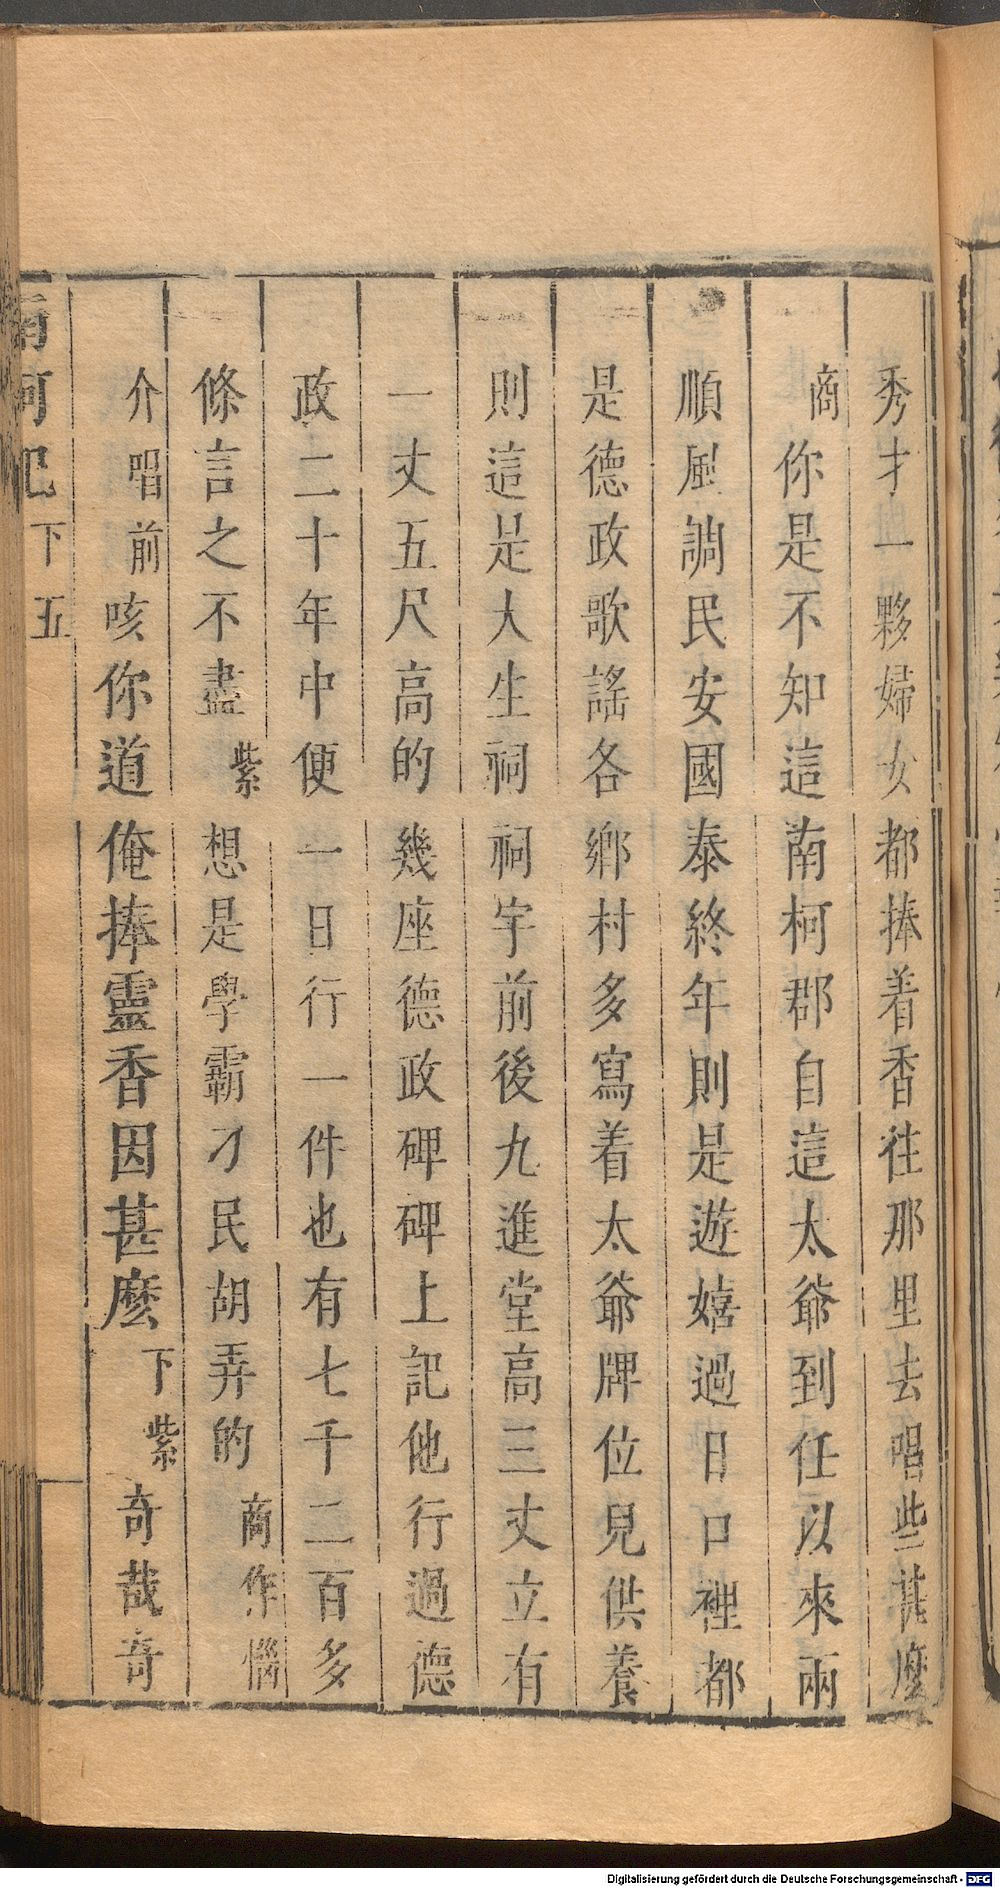 秀才一夥婦女都捧着香往那里去唱些甚麽
商你是不知這南柯郡自這太爺到任以來兩
順風調民安國泰終年則是遊嬉過日口裡都
是德政歌謠各鄉村多寫着太爺牌位兒供養
則這是大生祠祠宇前後九進堂高三丈立有
一丈五尺高的幾座德政碑碑上記他行過德
政二十年中便一日行一件也有七千二百多
條言之不盡紫想是學霸刁民胡弄的商作惱
介唱前咳你道俺捧靈香因甚麽下紫奇哉奇
南柯記下五
Digitalisierung gefördert durch die Deutsche Forschungsgemeinschaft - DFG